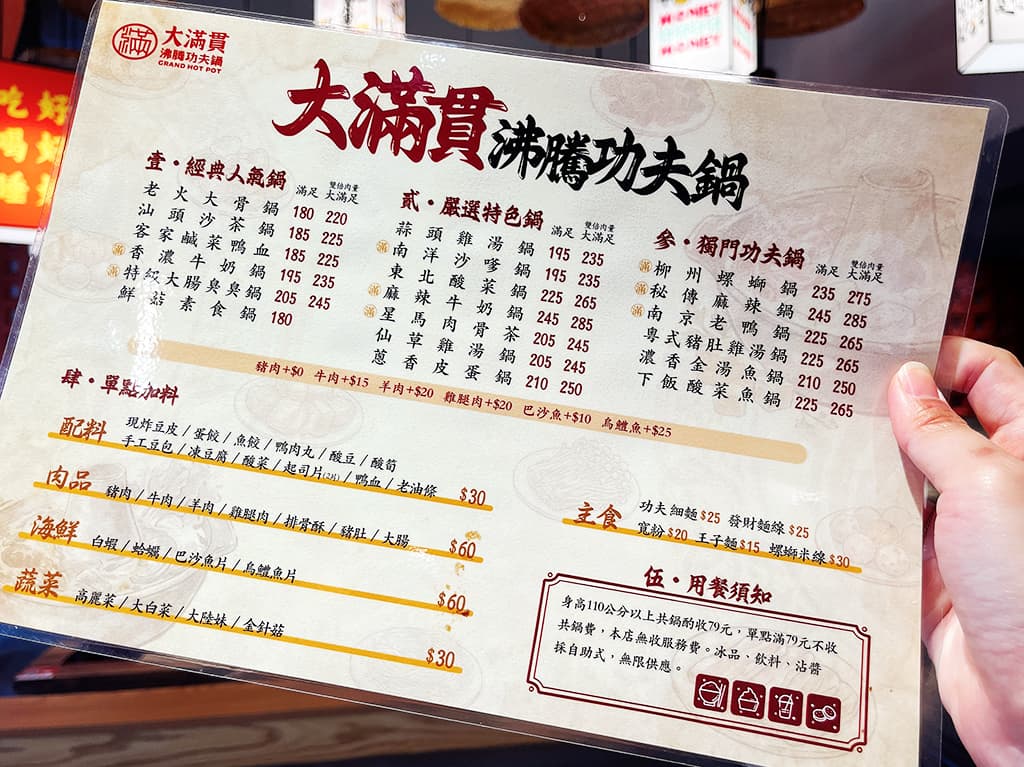 滿
大滿貫
沸騰功夫鍋
GRAND HOT POT
大滿貫沸騰功夫鍋
壹・經典人氣鍋 滿足 雙倍肉量 大滿足
老火大骨鍋 180 220
汕頭沙茶鍋 185 225
客家鹹菜鴨血 185 225
滿 香濃牛奶鍋 195 235
滿 特級大腸臭臭鍋 205 245
鮮菇素食鍋 180
貳・嚴選特色鍋 滿足 雙倍肉量 大滿足
蒜頭雞湯鍋 195 235
滿 南洋沙嗲鍋 195 235
東北酸菜鍋 225 265
滿 麻辣牛奶鍋 245 285
滿 星馬肉骨茶 205 245
仙草雞湯鍋 205 245
蔥香皮蛋鍋 210 250
參・獨門功夫鍋 滿足 雙倍肉量 大滿足
滿 柳州螺螄鍋 235 275
滿 秘傳麻辣鍋 245 285
滿 南京老鴨鍋 225 265
粵式豬肚雞湯鍋 225 265
濃香金湯魚鍋 210 250
下飯酸菜魚鍋 225 265
豬肉+$0 牛肉+$15 羊肉+$20 雞腿肉+$20 巴沙魚+$10 烏鱧魚+$25
肆・單點加料
配料 現炸豆皮/蛋餃/魚餃/鴨肉丸/酸豆/酸筍
手工豆包/凍豆腐/酸菜/起司片(2片)/鴨血/老油條 $30
肉品 豬肉/牛肉/羊肉/雞腿肉/排骨酥/豬肚/大腸 $60
海鮮 白蝦/蛤蠣/巴沙魚片/烏鱧魚片 $60
蔬菜 高麗菜/大白菜/大陸妹/金針菇 $30
主食 功夫細麵$25 發財麵線$25
寬粉$20 王子麵$15 螺螄米線$30
伍・用餐須知
身高110公分以上共鍋酌收79元，單點滿79元不收
共鍋費，本店無收服務費。冰品、飲料、沾醬
採自助式，無限供應。